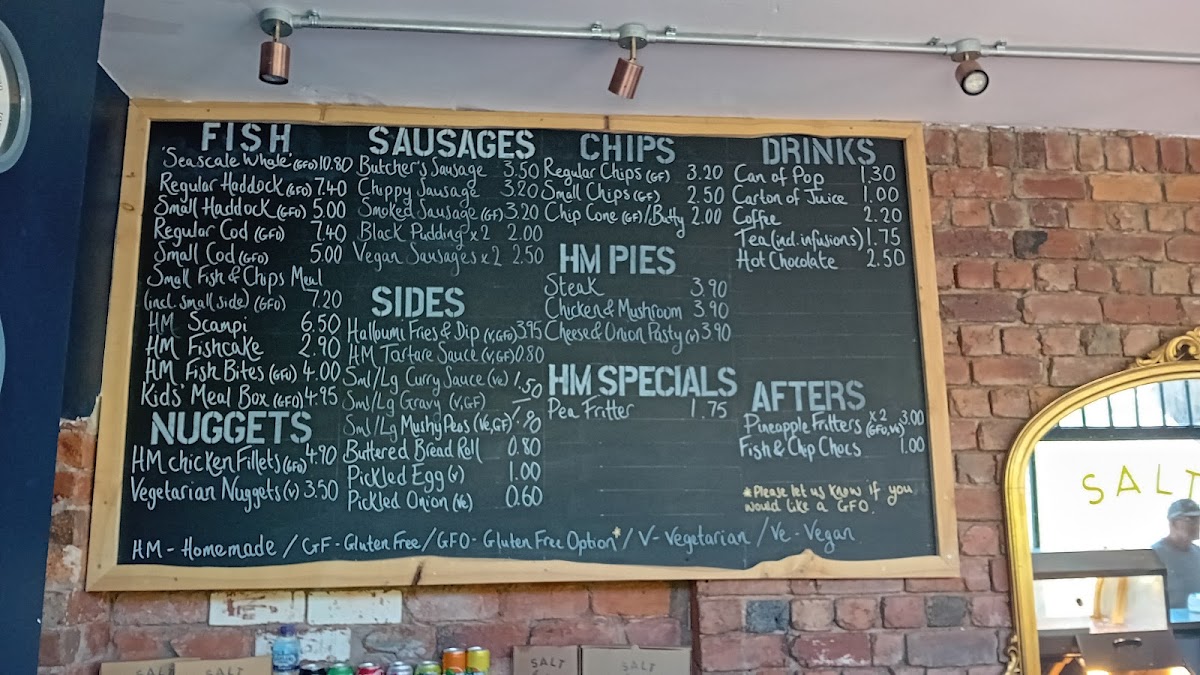 FISH
'Seascale Whale' (GFO) 10.80
Regular Haddock (GFO) 7.40
Small Haddock (GFO) 5.00
Regular Cod (GFO) 7.40
Small Cod (GFO) 5.00
Small Fish & Chips Meal
(incl. small side) (GFO) 7.20
HM Scampi 6.50
HM Fishcake 2.90
HM Fish Bites (GFO) 4.00
Kids' Meal Box (GFO) 4.95
NUGGETS
HM chicken Fillets (GFO) 4.90
Vegetarian Nuggets (V) 3.50
SAUSAGES
Butcher's Sausage 3.50
Chippy Sausage 3.20
Smoked Sausage (GF) 3.20
Black Pudding x 2 2.00
Vegan Sausages x 2 2.50
SIDES
Halloumi Fries & Dip (V, GFO) 3.95
HM Tartare Sauce (V, GF) 0.80
Sml/Lg Curry Sauce (Ve) 1.50
Sml/Lg Gravy (V, GF)
Sml/Lg Mushy Peas (Ve, GF)
Buttered Bread Roll 0.80
Pickled Egg (V) 1.00
Pickled Onion (Ve) 0.60
CHIPS
Regular Chips (GF) 3.20
Small Chips (GF) 2.50
Chip Cone (GF) / Butty 2.00
HM PIES
Steak 3.90
Chicken & Mushroom 3.90
Cheese & Onion Pasty (V) 3.90
HM SPECIALS
Pea Fritter 1.75
DRINKS
Can of Pop 1.30
Carton of Juice 1.00
Coffee 2.20
Tea (incl. infusions) 1.75
Hot Chocolate 2.50
AFTERS
Pineapple Fritters x 2 (GFO, Ve) 3.00
Fish & Chip Chocs 1.00
*Please let us know if you
would like a GFO.
HM - Homemade / GF - Gluten Free / GFO - Gluten Free Option* / V - Vegetarian / Ve - Vegan
SALT
SALT
SALT
SALT